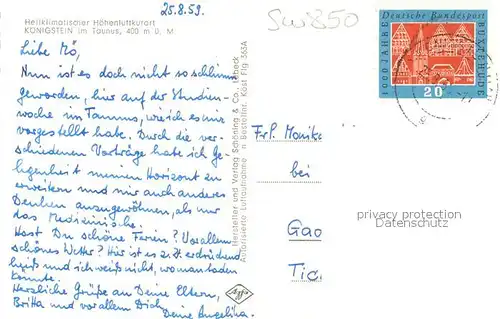 25.8.59.
SW850
Heilklimatischer Höhenluftkurort
KÖNIGSTEIN im Taunus, 400 m ü. M
Liebe Mö,
Nun ist es doch nicht so schlimm
geworden, hier auf der Studien-
woche im Taunus, wie ich es mir
vorgestellt habe. Durch die ver-
schiedenen Vorträge habe ich Ge-
legenheit meinen Horizont zu
erweitern und mir auch anderes
Denken anzugewöhnen, als nur
das Medizinische.
Hast Du schöne Ferien? Vor allem
schönes Wetter? Hier ist es z.Zt. erdrückend
heiß und ich weiß nicht, wo man baden
könnte.
Herzliche Grüße an Deine Eltern,
Britta und vor allem Dich,
Deine Angelika.
Hersteller und Verlag Schöning & Co., Lübeck
Autorisierte Luftaufnahme n. Bestellnr. Köst Flg 363A
Agfa
1000 JAHRE
Deutsche Bundespost
BUXTEHUDE
20
Frl. Monika
bei
Gao
Tic
privacy protection
Datenschutz